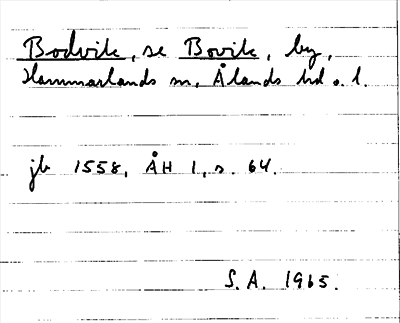 Bodvik, se Bovik, by,
Hammarlands sn, Ålands hd o. l.
jb 1558, ÅH 1, s. 64.
S. A. 1965.